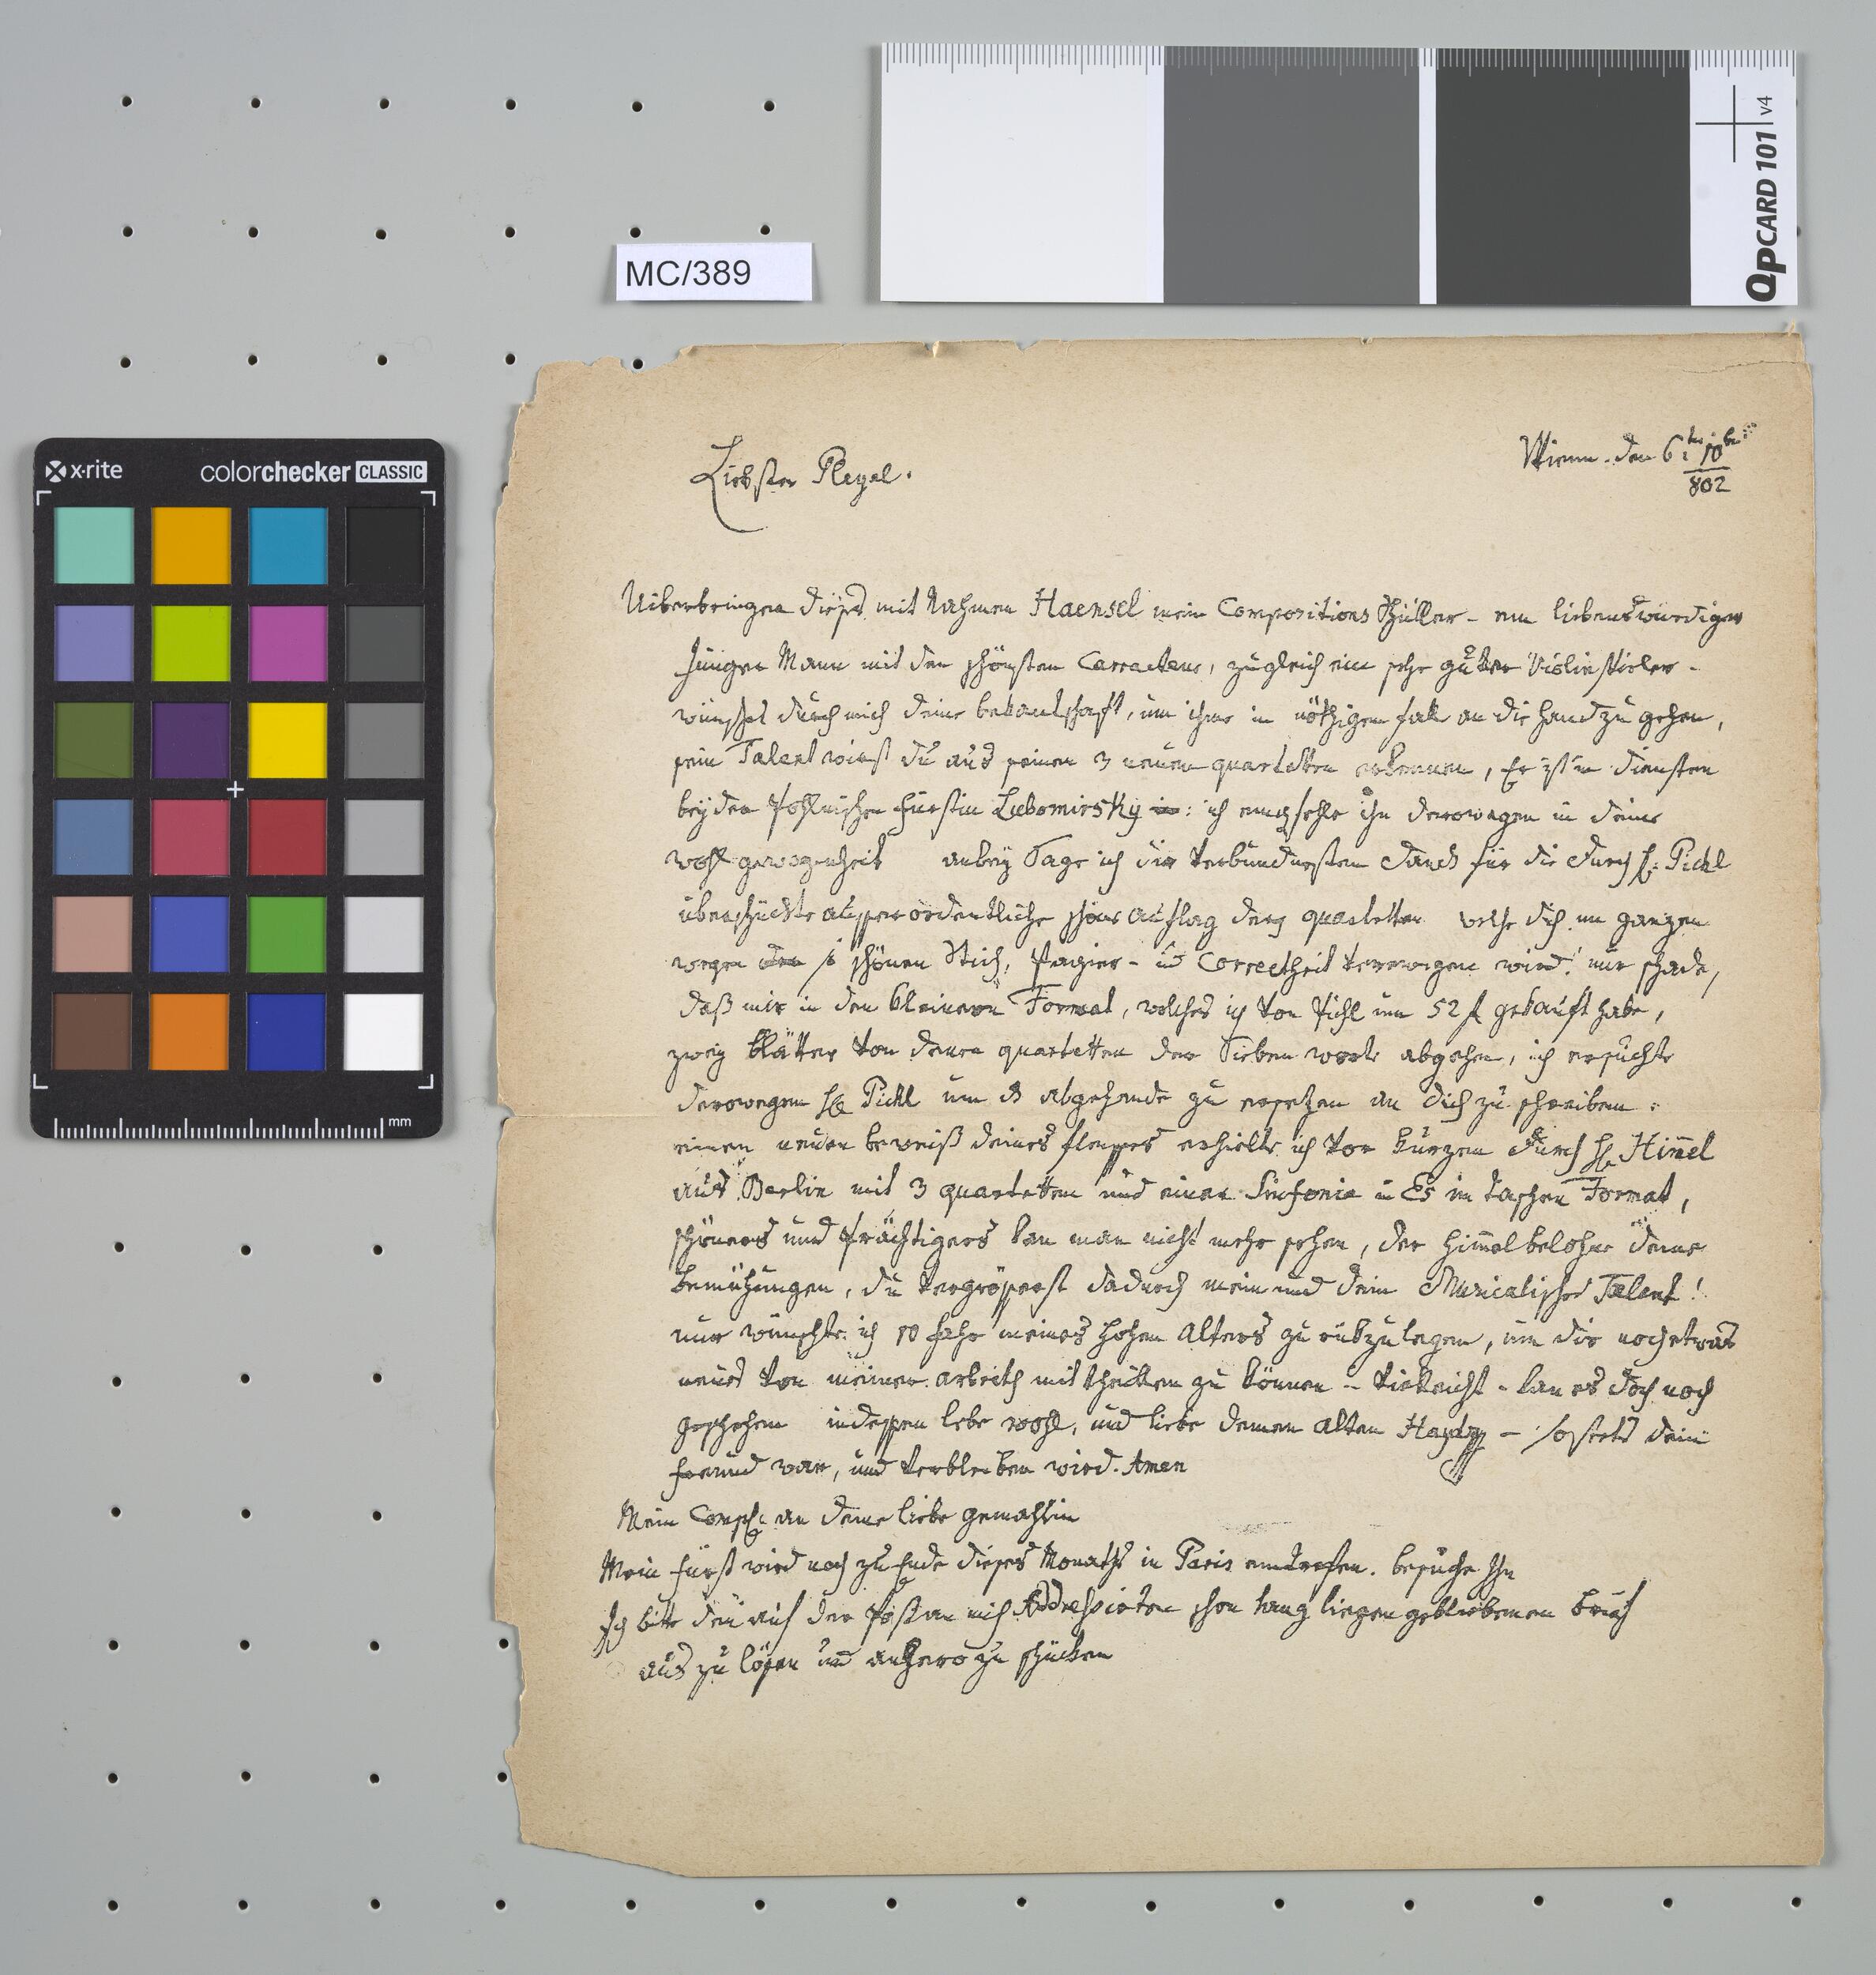 QPCARD 101 v4
MC/389
x-rite colorchecker CLASSIC
mm
Wienn. den 6ten 10br
802
Liebster Pleyel.
Uiberbringer dieses mit Nahmen Haensel mein Compositions Schüller – ein liebenswürdiger
Junger Mann mit den schönsten Carracteur, zugleich ein sehr guter Violin Spieler –
wünschet durch mich deine bekantschaft, um ihme in nöthigen fall an die hand zu gehen,
sein Talent wirst du aus seinen 3 neuen quartetten erkennen, Er ist in diensten
bey der Pohlnischen fürstin Lubomirsky : ich empfehle ihn derowegen in deine
wohlgewogenheit anbey Sage ich dir verbundensten danck für die durch H. Pichl
überschückte ausserordentliche schöne auflag der quartetten welche dich im ganzen
wegen schönen Stich, Papier – und Correctheit verewigen wird! nur schade,
daß mir in den kleinern Format, welches ich von Pichl um 52 f gekauft habe,
zwey blätter von denen quartetten der Sieben worte abgehen, ich ersuchte
derowegen H Pichl um das abgehende zu ersetzen an dich zu schreiben.
einen neuen beweiß deines fleisses erhielte ich vor kurzen durch H. Him̄el
aus Berlin mit 3 quartetten und einer Sinfonie in Es in taschen Format,
schöners und prächtigers kan man nicht mehr sehen, der Him̄el belohne deine
bemühungen, du vergrösserst dadurch mein und dein Musicalisches Talent!
nur wünschte ich 10 Jahr meines hohen Alters zurückzulegen, um dir noch etwas
neues von meiner arbeith mittheillen zu können – vielleicht – kan es doch noch
geschehen indessen lebe wohl, und liebe deinen alten Haydn – so stets dein
freund war, und verbleiben wird. Amen
Mein Compl: an deine liebe gemahlin
Mein fürst wird noch zu Ende dieses Monaths in Paris eintreffen. besuche Ihn
Ich bitte den auf der Post an mich Addressirten schon lang liegen gebliebenen brief
aus zu lösen und anhero zu schücken